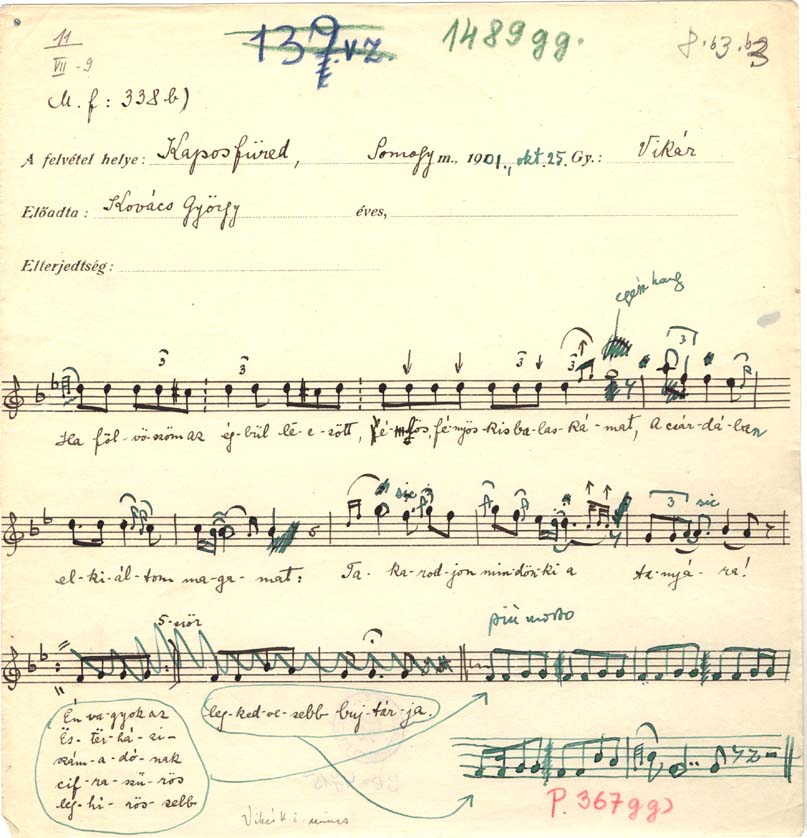 11
VII - 9
137.vz.
1489gg.
M. f: 338.b)
A felvétel helye: Kaposfüred, Somogy m., 1901., okt. 25. Gy.: Vikár
Előadta: Kovács György éves,
Elterjedtség:
egész hang
3 3 3 3 3
Ha föl-vö-szöm az ég-bül lé-e-sött, fé-nyös kis ba-las-ká-mat, A csár-dá-ban
sic 3 sic
el-ki-ál-tom ma-ga-mat: Ta-ka-rod-jon min-dön-ki a ta-nyá-ra!
5-ször
più mosso
Én va-gyok az
Es-tër-há-zi
szám-a-dó-nak
cif-ra-szü-rös
leg-hi-rös-sebb
leg-ked-ve-sebb buj-tár-ja.
P. 367gg)